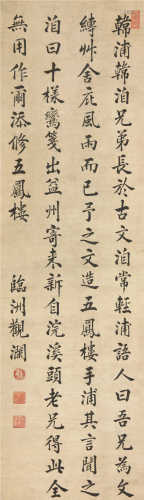 韓浦韓洎兄弟長於古文洎常輕浦語人曰吾兄為文
縳艸舍庇風雨而已予之文造五鳳樓手浦其言聞之
洎曰十樣鸞箋出益州寄来新自浣溪頭老兄得此全
無用作爾添修五鳳樓
臨洲觀瀾